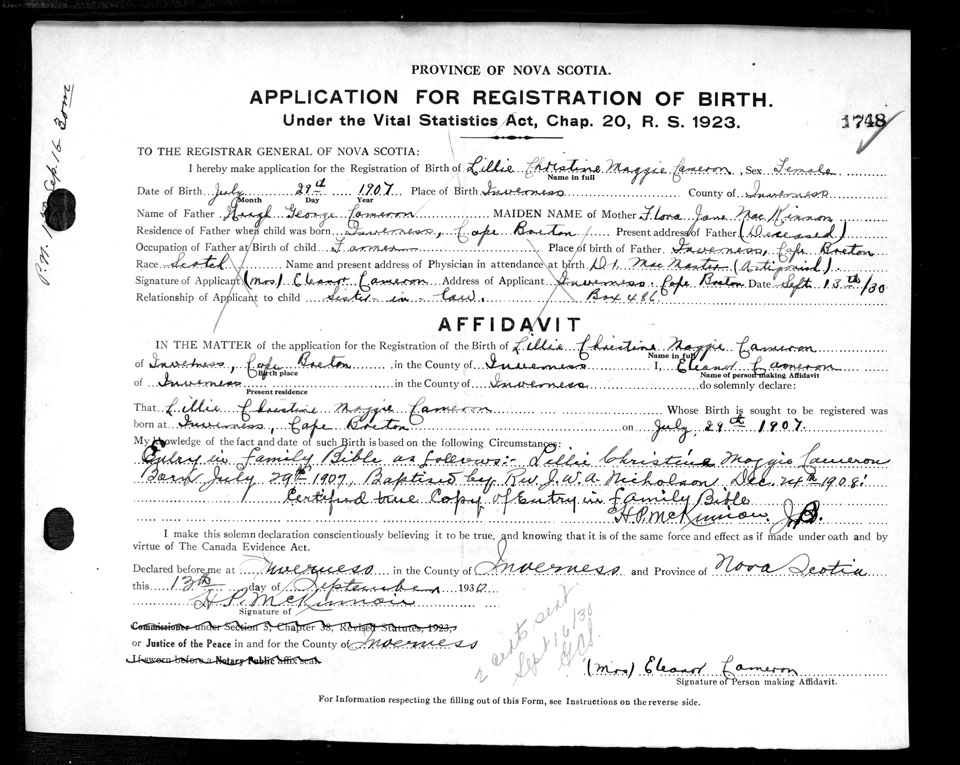 PROVINCE OF NOVA SCOTIA.
APPLICATION FOR REGISTRATION OF BIRTH.
Under the Vital Statistics Act, Chap. 20, R. S. 1923.
1748
TO THE REGISTRAR GENERAL OF NOVA SCOTIA:
I hereby make application for the Registration of Birth of Lillie Christine Maggie Cameron, Sex Female
Name in full
Date of Birth July 29th 1907 Place of Birth Inverness County of Inverness
Month Day Year
Name of Father George Cameron MAIDEN NAME of Mother Flora Jane MacKinnon
Residence of Father when child was born Inverness, Cape Breton Present address of Father (Deceased)
Occupation of Father at Birth of child Farmer Place of birth of Father Inverness, Cape Breton
Race Scotch Name and present address of Physician in attendance at birth MacMaster (Antigonish).
Signature of Applicant (Mrs) Eleanor Cameron Address of Applicant Inverness. Cape Breton Date Sept. 13th/30
Relationship of Applicant to child Sister in law. Box 486
AFFIDAVIT
IN THE MATTER of the application for the Registration of the Birth of Lillie Christine Maggie Cameron
Name in full
of Inverness, Cape Breton, in the County of Inverness I, Eleanor Cameron
Birth place Name of person making Affidavit
of Inverness in the County of Inverness do solemnly declare:
Present residence
That Lillie Christine Maggie Cameron Whose Birth is sought to be registered was
born at Inverness, Cape Breton on July, 29th 1907.
My knowledge of the fact and date of such Birth is based on the following Circumstances:
Entry in Family Bible as follows:- Lillie Christine Maggie Cameron
Born July 29th 1907, Baptised by Rev. J. W. A. Nicholson Dec. 1908.
Certified true Copy of Entry in Family Bible
H P McKinnon. J.P.
I make this solemn declaration conscientiously believing it to be true, and knowing that it is of the same force and effect as if made under oath and by
virtue of The Canada Evidence Act.
Declared before me at Inverness in the County of Inverness and Province of Nova Scotia
this 13th day of September 1930
H P. McKinnon
Signature of
Commissioner under Section 5, Chapter 38, Revised Statutes, 1923,
or Justice of the Peace in and for the County of Inverness
If sworn before a Notary Public affix seal.
2 certs sent
Sept 16/30
(Mrs) Eleanor Cameron
Signature of Person making Affidavit.
For Information respecting the filling out of this Form, see Instructions on the reverse side.